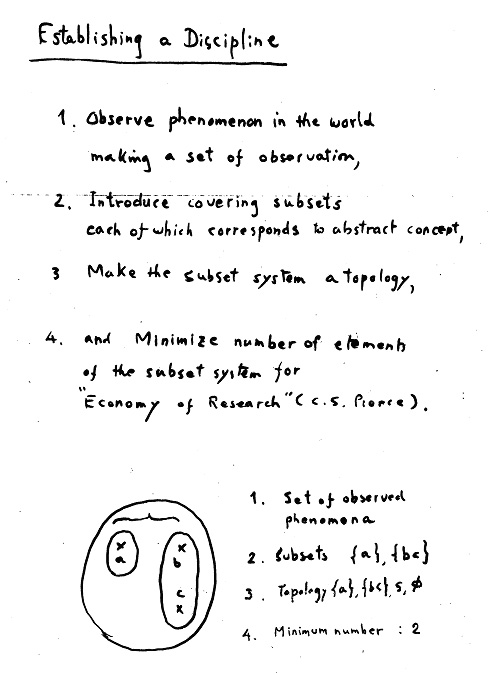 Establishing a Discipline
1. Observe phenomenon in the world
making a set of observation,
2. Introduce covering subsets
each of which corresponds to abstract concept,
3 Make the subset system a topology,
4. and Minimize number of elements
of the subset system for
"Economy of Research" (C.S. Pierce).
x
a
x
b
c
x
1. Set of observed
phenomena
2. Subsets {a}, {bc}
3. Topology {a}, {bc}, S, ϕ
4. Minimum number : 2